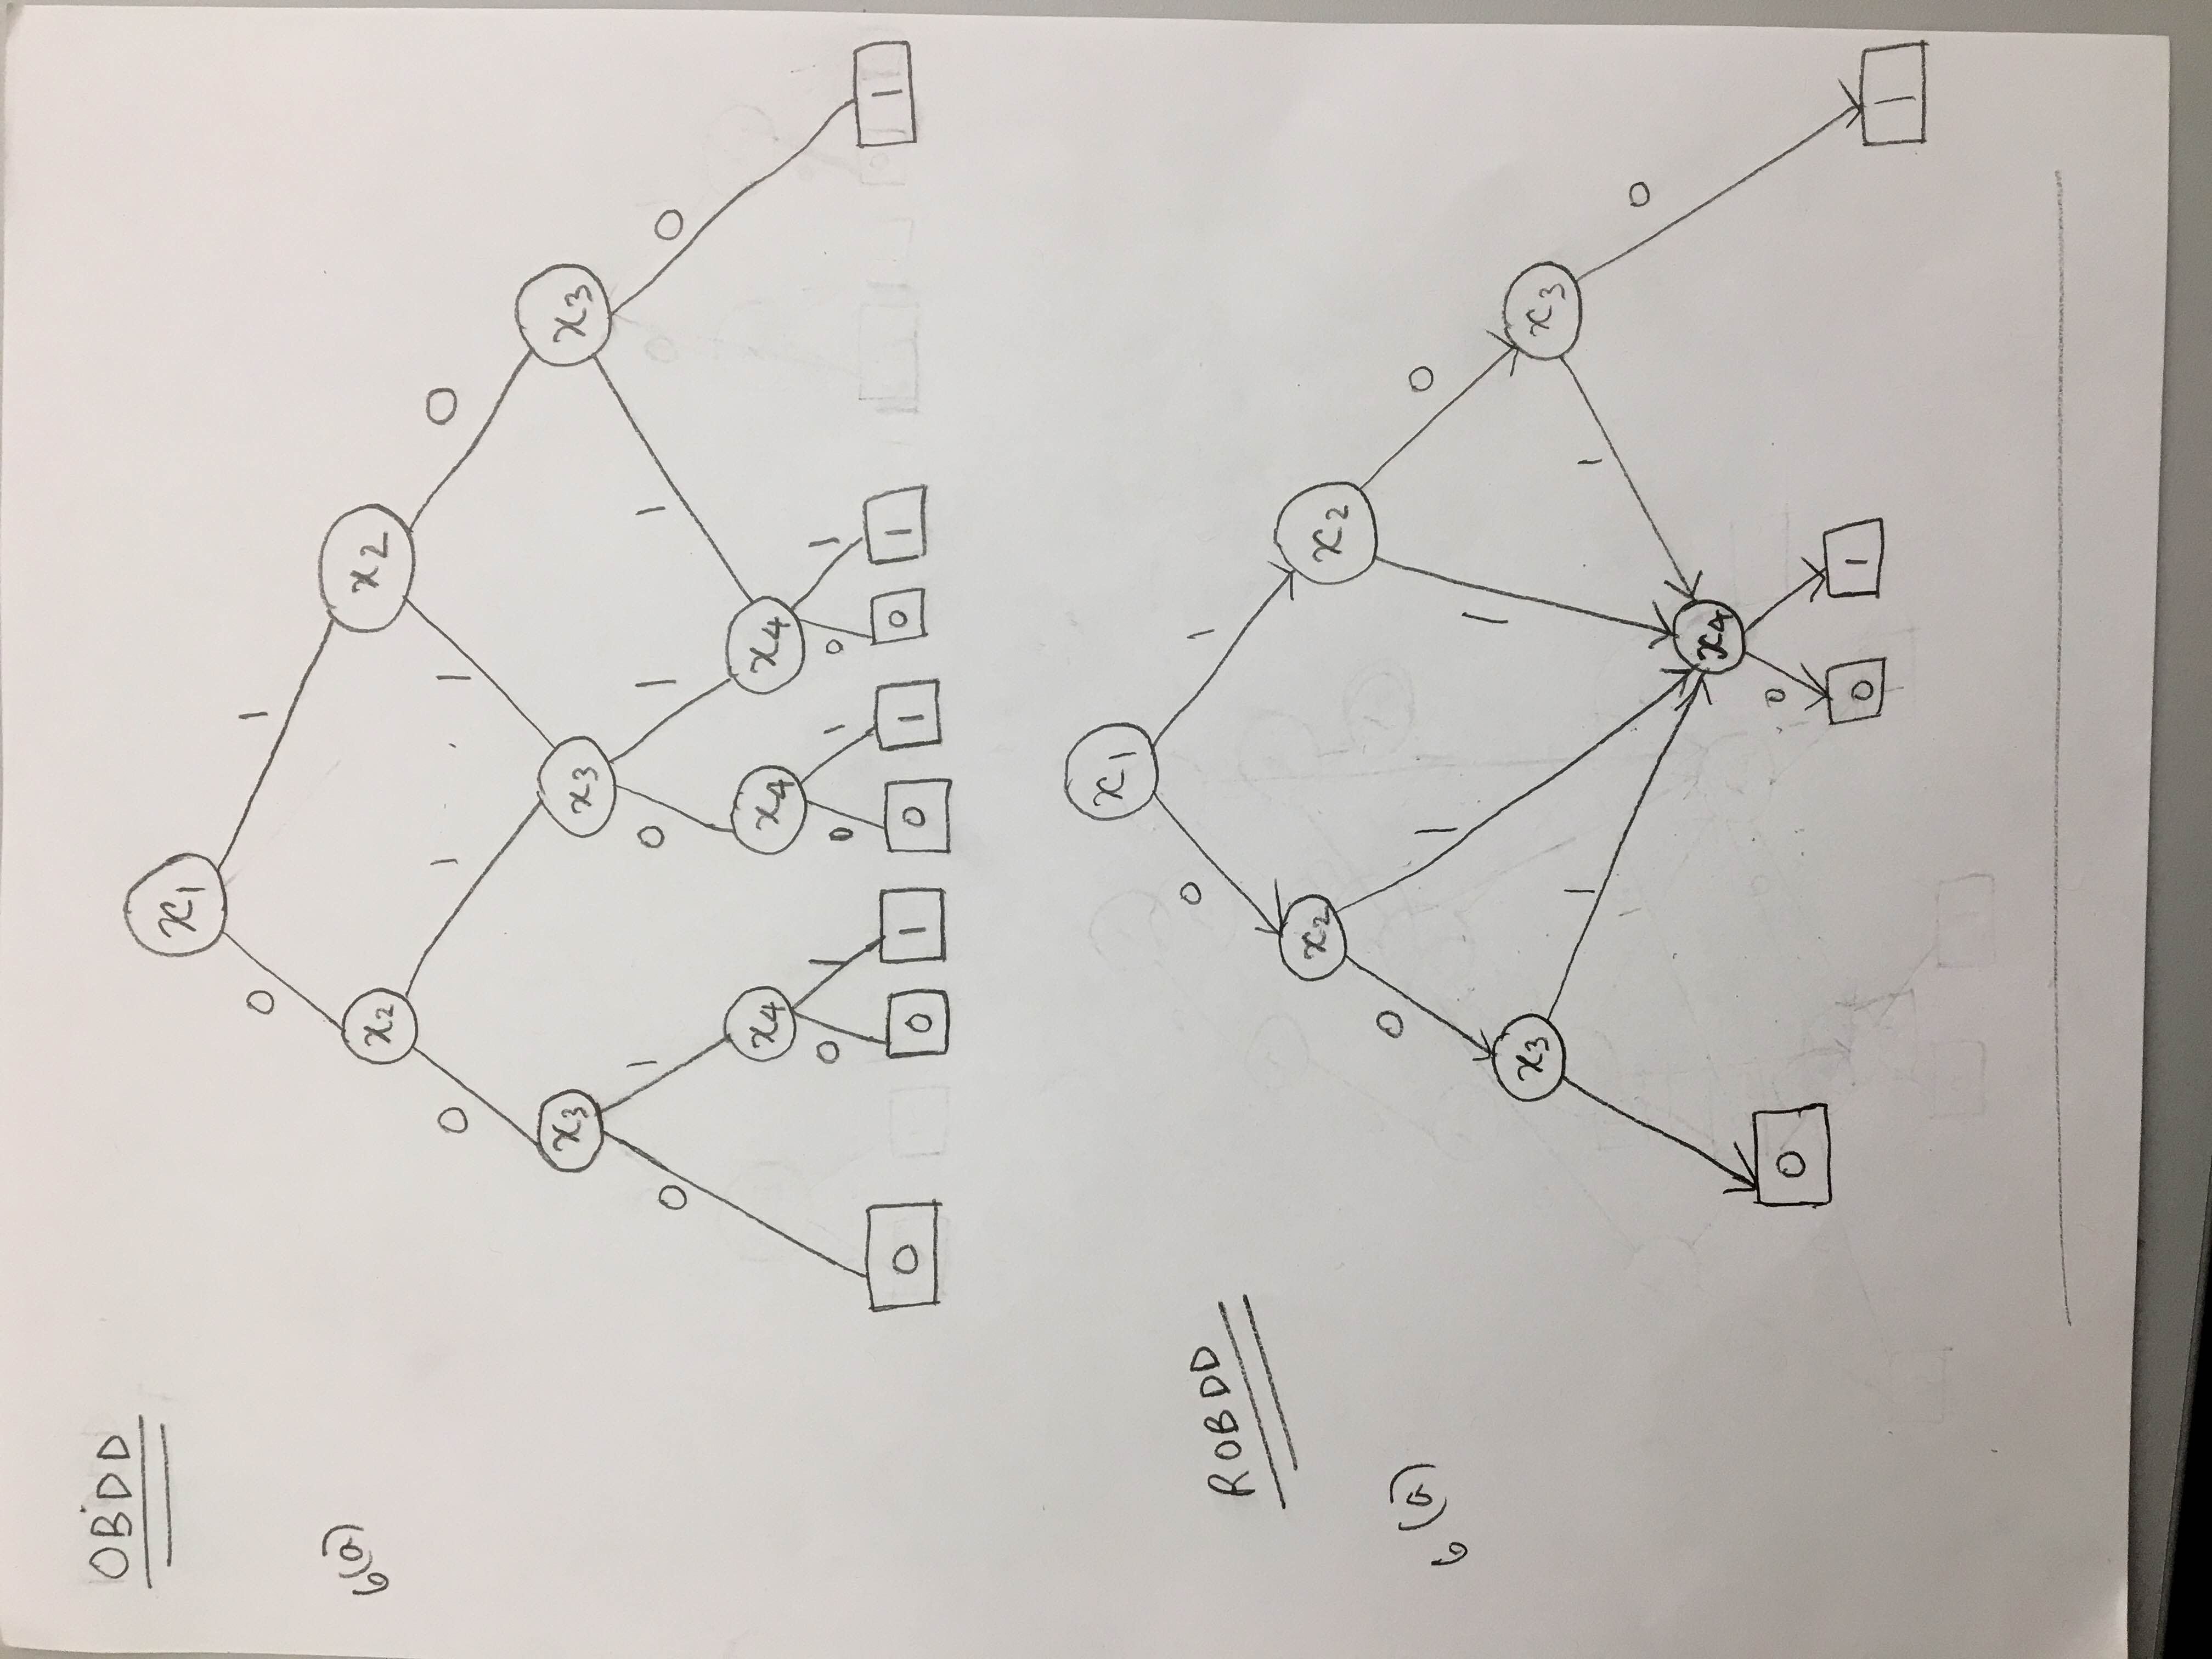 OBDD
x1
0 1
6(a)
x2 x2
0 1 1 0
x3 x3 x3
0 1 0 1 1 0
x4 x4 x4
0 1 0 1 0 1
0 0 1 0 1 0 1 1
x1
ROBDD
0 1
x2 x2
6(a)
0 1 1 0
x3 x3
1 1 0
x4
0
0 0 1 1